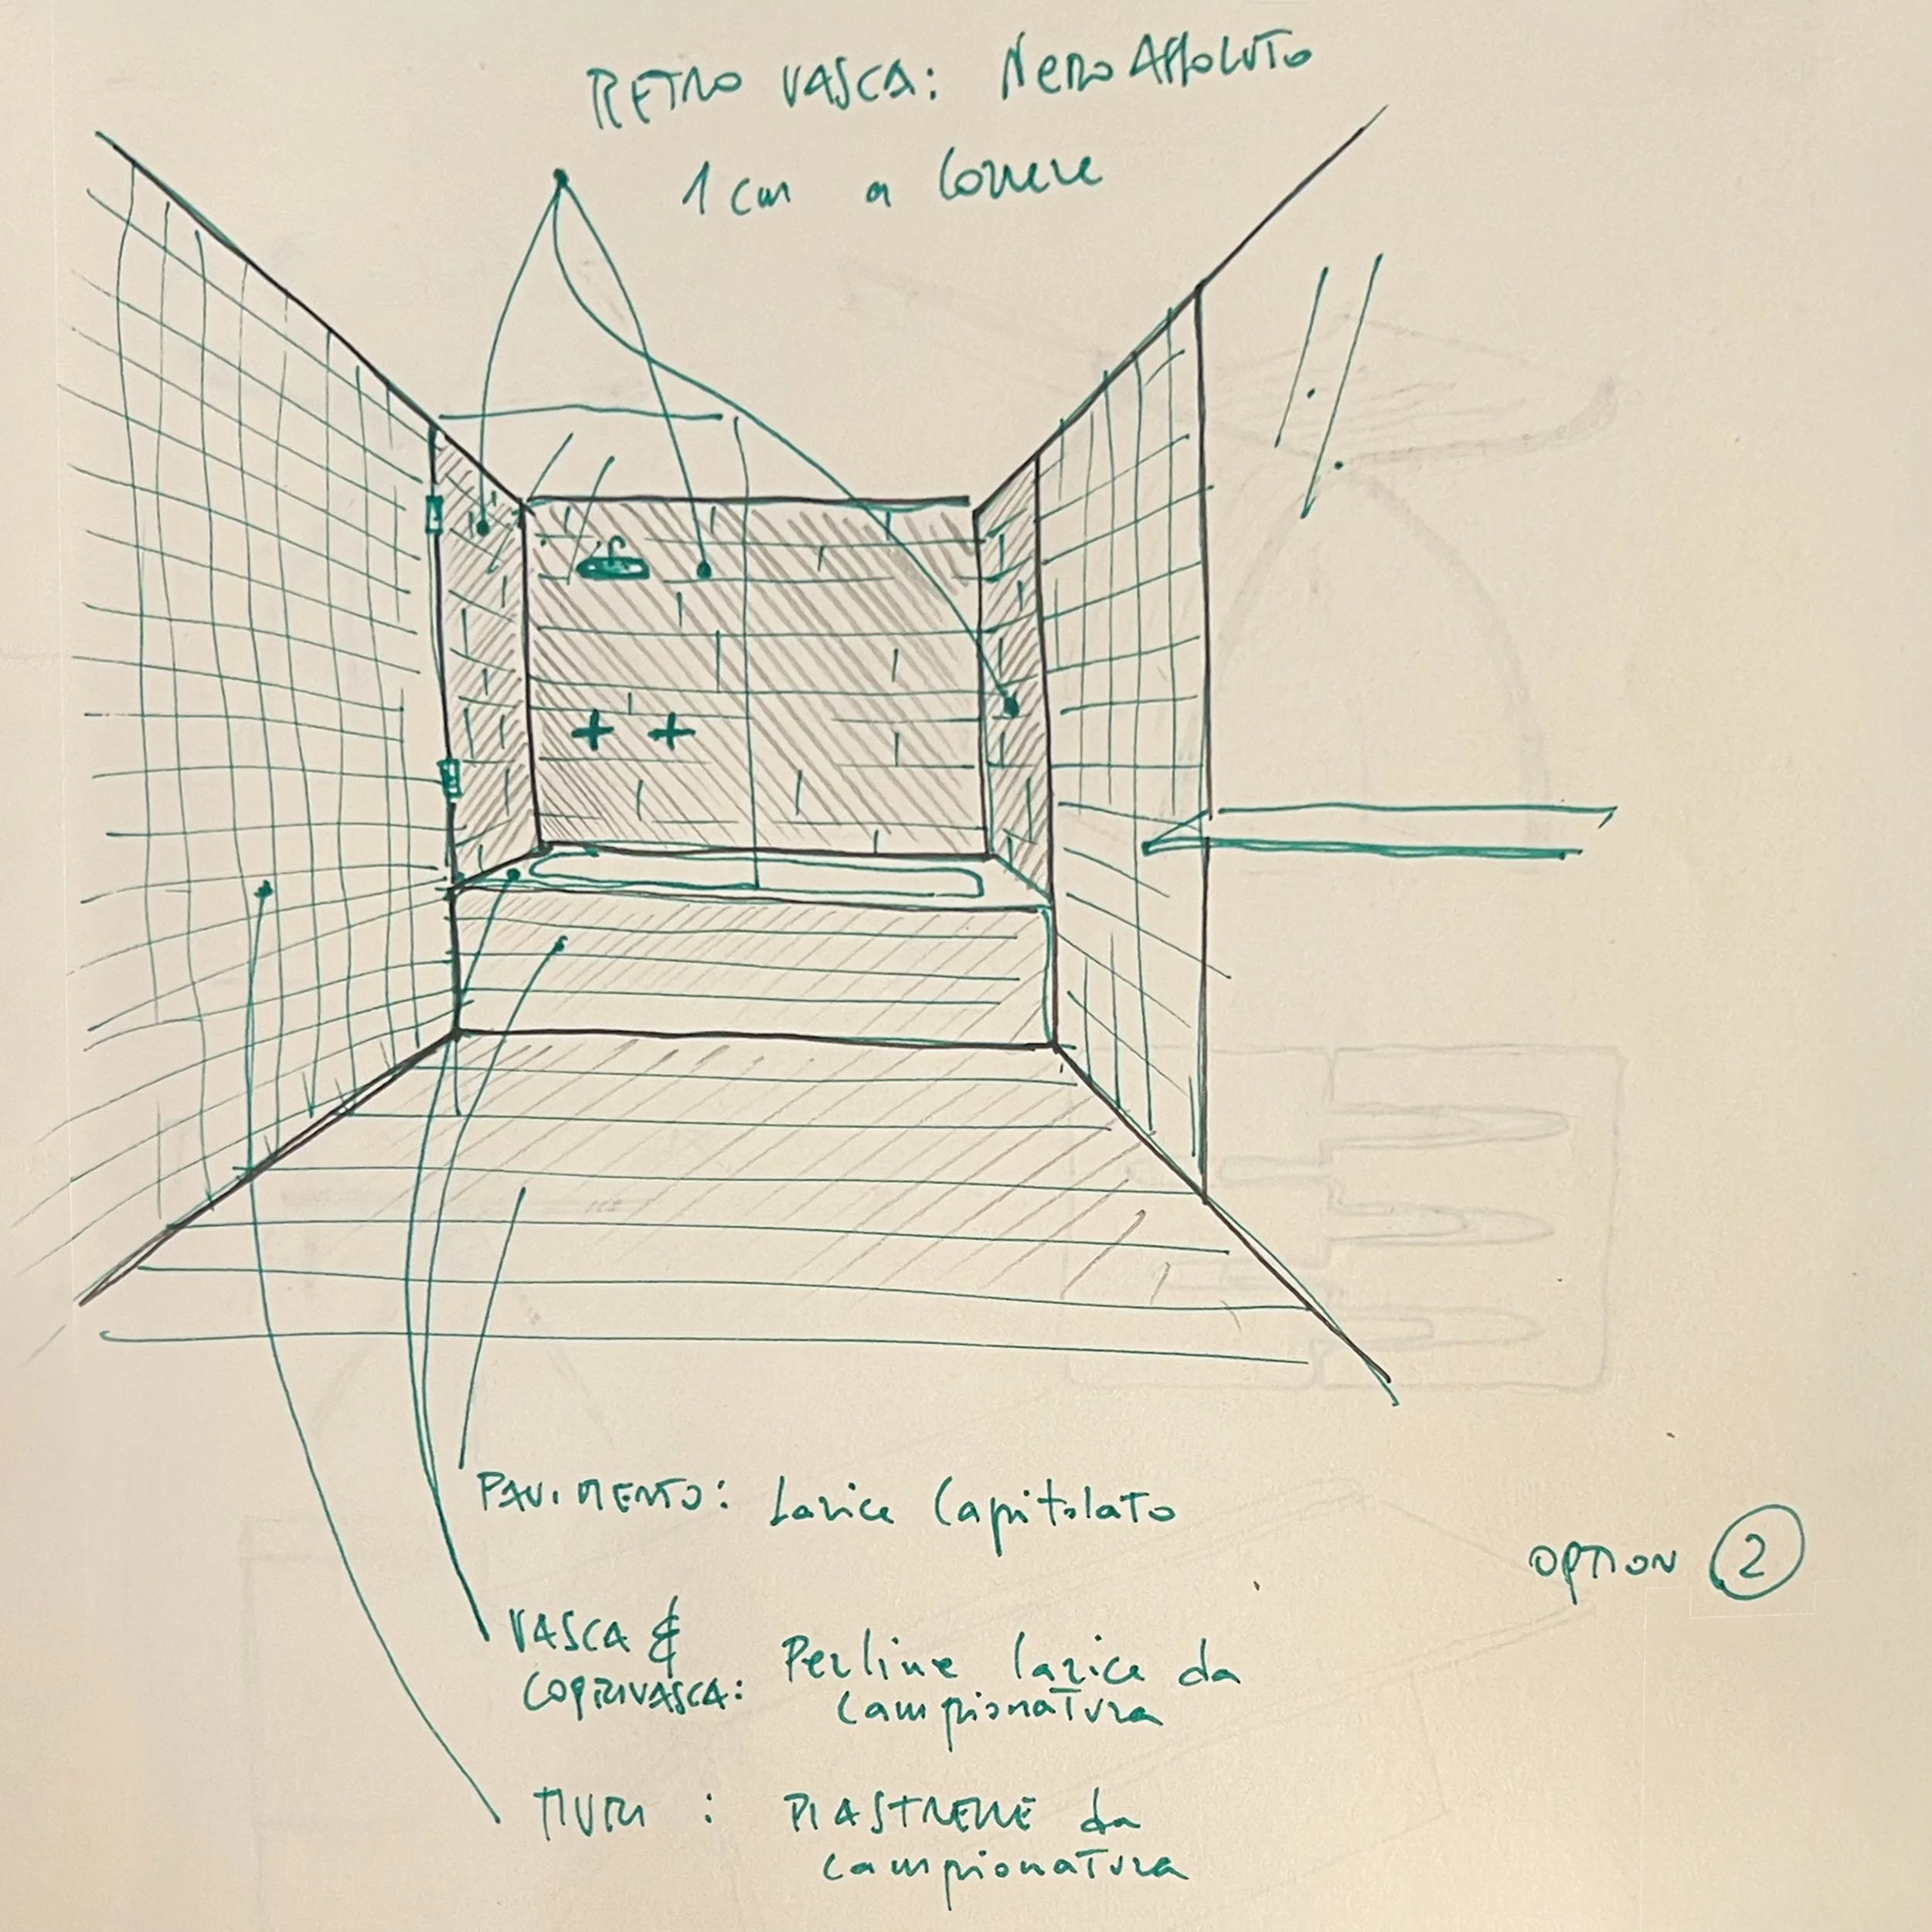 RETRO VASCA: Nero Assoluto
1 cm a correre
PAVIMENTO: Larice Capitolato
VASCA &
COPRIVASCA: Perline larice da
campionatura
MURI : PIASTRELLE da
campionatura
OPTION 2